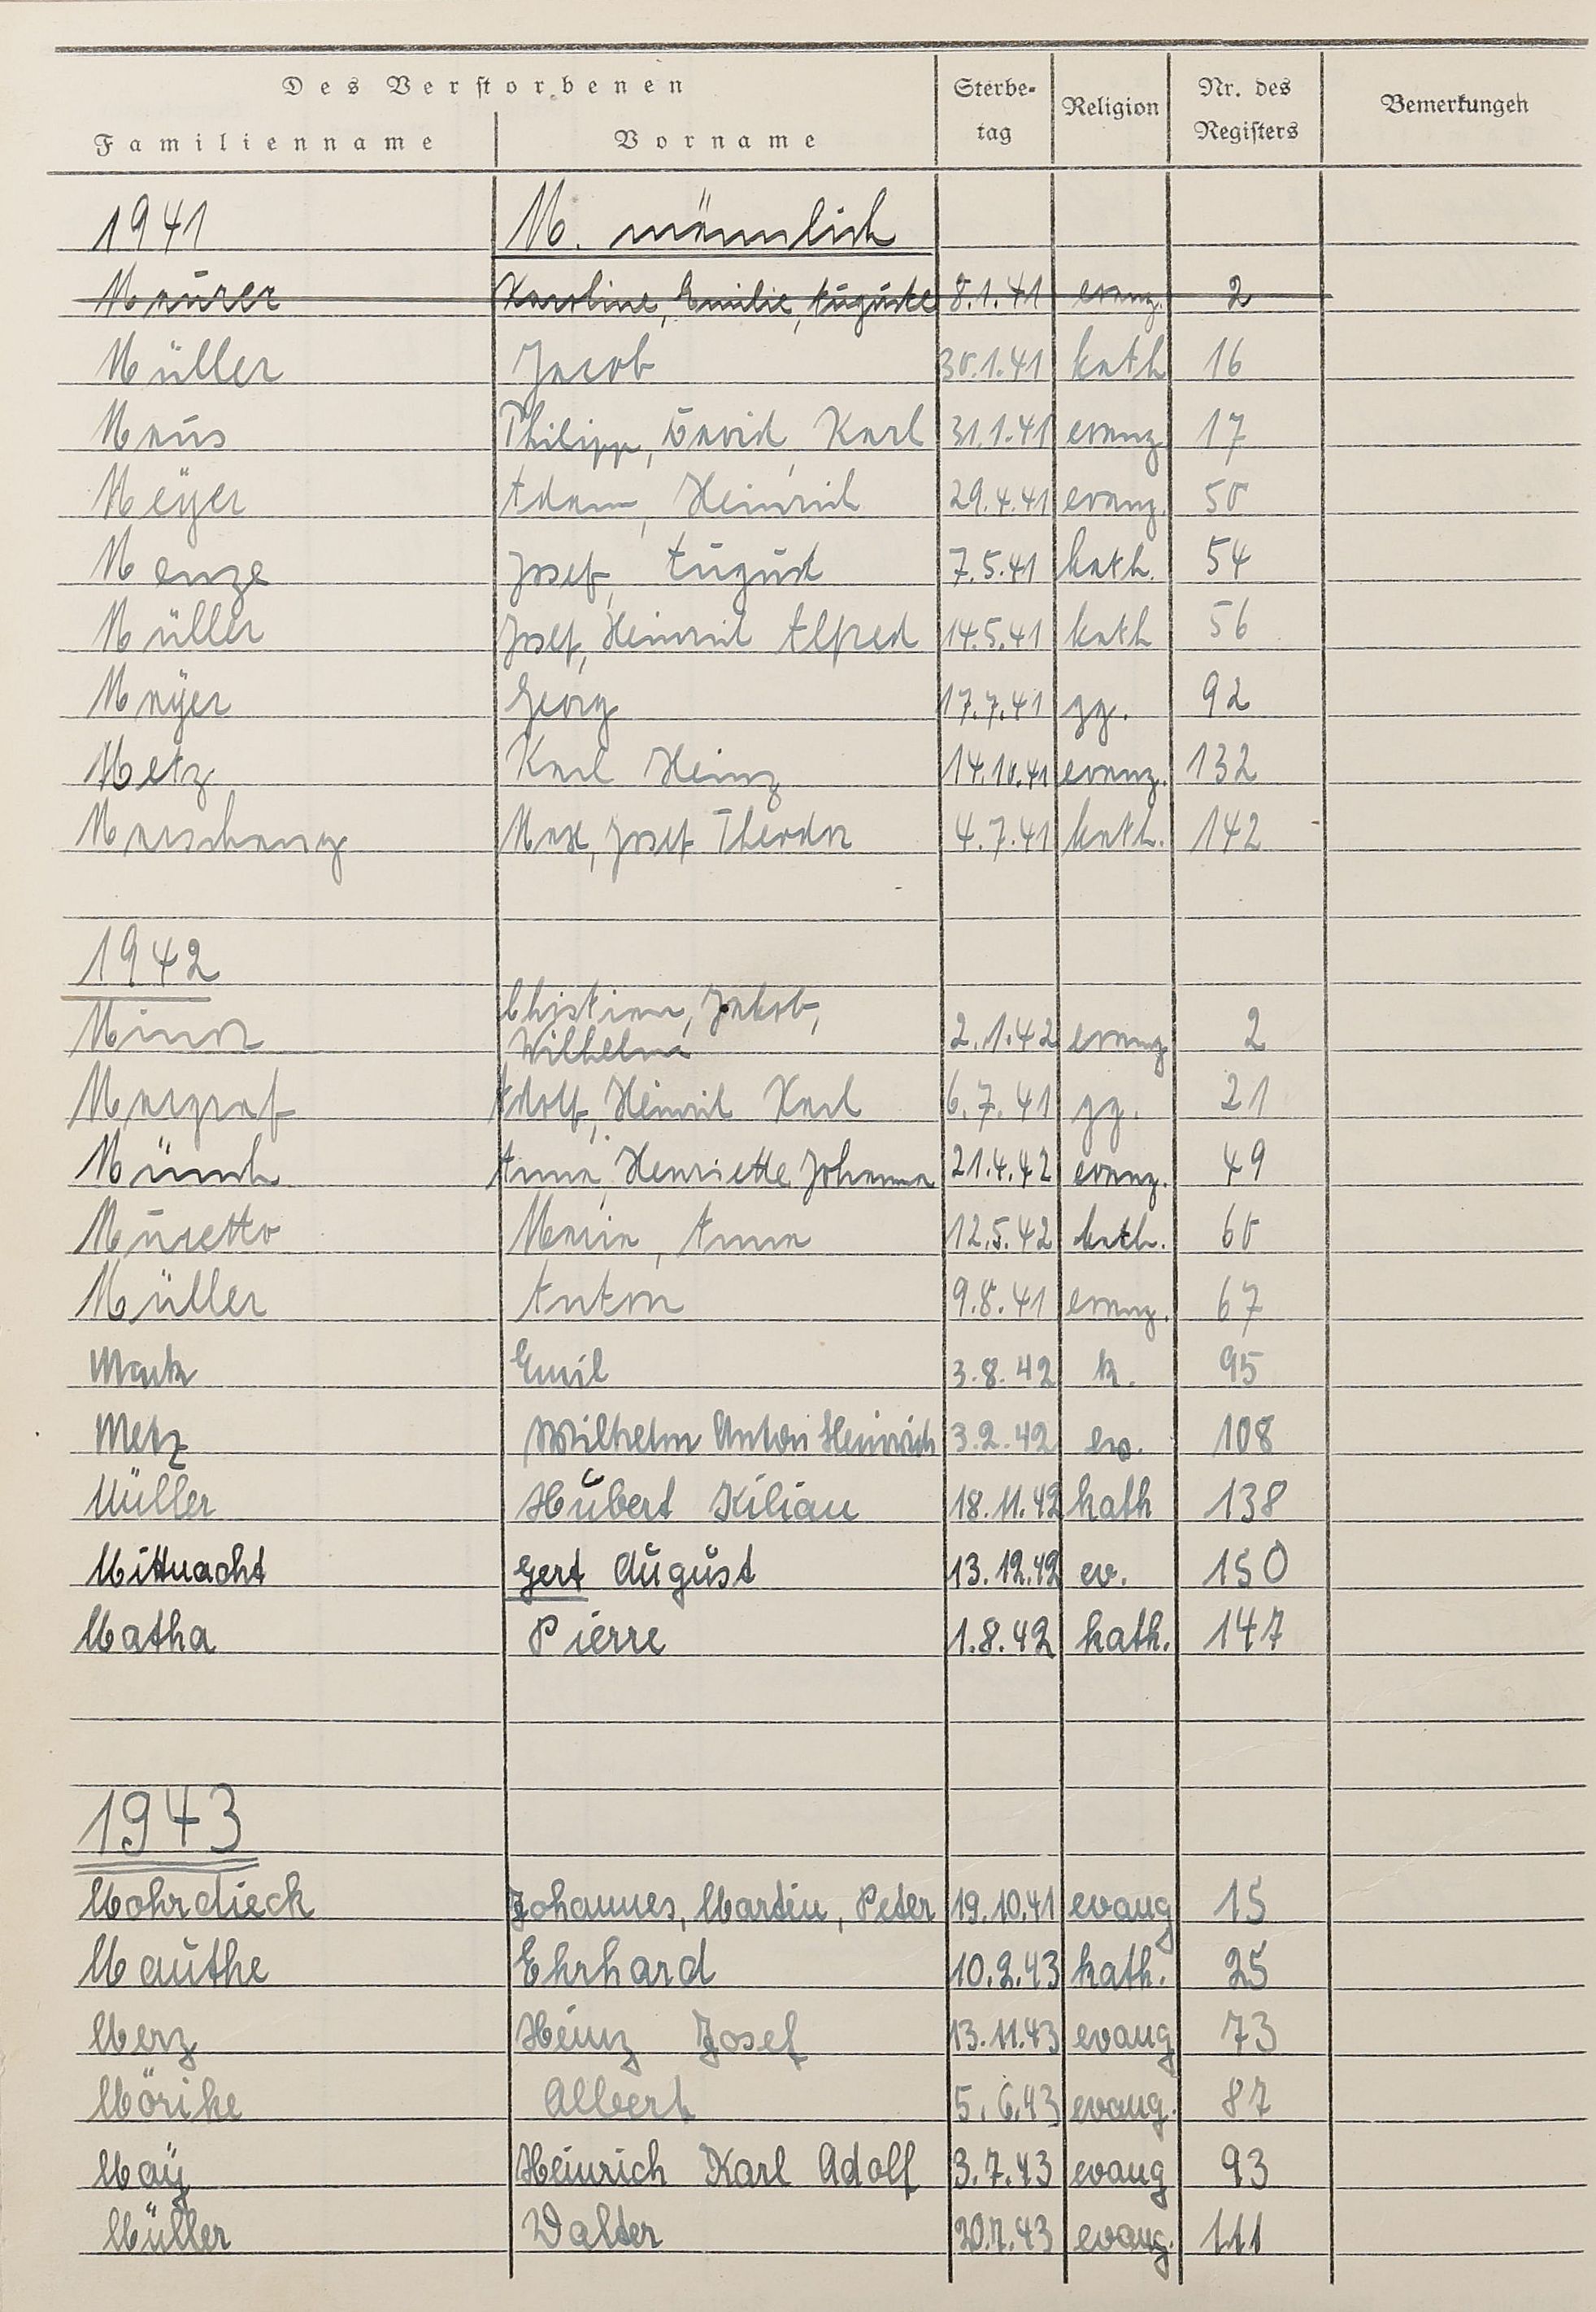 Des Verstorbenen
Familienname Vorname Sterbetag Religion Nr. des Registers Bemerkungen
1941 M. männlich
Maurer Karoline, Emilie, Auguste 8.1.41 evang. 2
Müller Jacob 30.1.41 kath 16
Maus Philipp, David, Karl 31.1.41 evang 17
Meÿer Adam, Heinrich 29.4.41 evang. 50
Menze Josef, August 7.5.41 kath. 54
Müller Josef, Heinrich Alfred 14.5.41 kath 56
Maÿer Georg 17.7.41 gg. 92
Metz Karl Heinz 14.10.41 evang. 132
Marschang Max, Josef Theodor 4.7.41 kath. 142
1942
Minor Christian, Jakob, Wilhelm 2.1.42 evang 2
Margraf Adolf, Heinrich Karl 6.7.41 gg. 21
Münch Anna, Henriette Johanna 21.4.42 evang. 49
Muretto Maria, Anna 12.5.42 kath. 60
Müller Anton 9.8.41 evang. 67
Mark Emil 3.8.42 k. 95
Metz Wilhelm Anton Heinrich 3.2.42 ev. 108
Müller Hubert Kilian 18.11.42 kath 138
Mittnacht Gert August 13.12.42 ev. 150
Matha Pierre 1.8.42 kath. 147
1943
Mohrdieck Johannes, Martin, Peter 19.10.41 evang 15
Mauthe Ehrhard 10.2.43 kath. 25
Merz Heinz Josef 13.11.43 evang 73
Mörike Albert 5.6.43 evang. 87
Maÿ Heinrich Karl Adolf 3.7.43 evang 93
Müller Walter 20.7.43 evang. 111